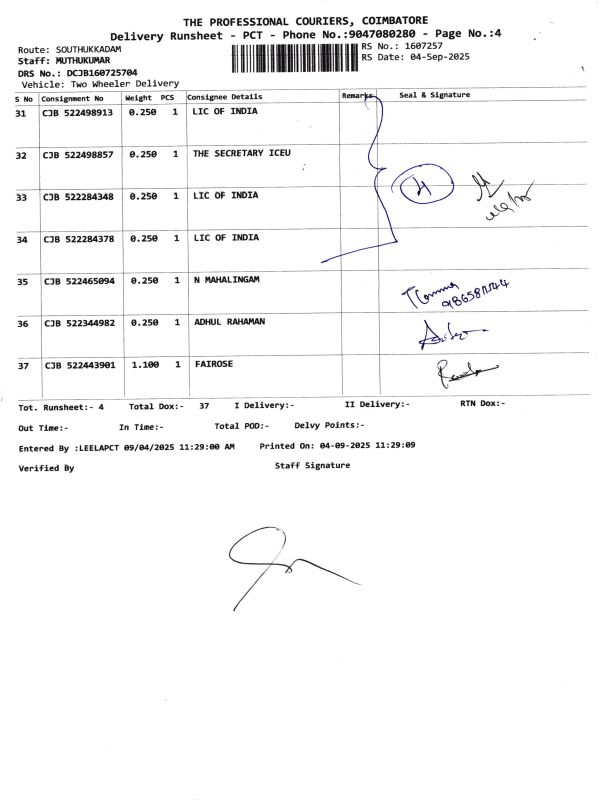 THE PROFESSIONAL COURIERS, COIMBATORE
Delivery Runsheet - PCT - Phone No.:9047080280 - Page No.:4
Route: SOUTHUKKADAM RS No.: 1607257
Staff: MUTHUKUMAR RS Date: 04-Sep-2025
DRS No.: DCJB160725704
Vehicle: Two Wheeler Delivery
S No Consignment No Weight PCS Consignee Details Remarks Seal & Signature
31 CJB 522498913 0.250 1 LIC OF INDIA
32 CJB 522498857 0.250 1 THE SECRETARY ICEU
4
33 CJB 522284348 0.250 1 LIC OF INDIA
34 CJB 522284378 0.250 1 LIC OF INDIA
35 CJB 522465094 0.250 1 N MAHALINGAM
36 CJB 522344982 0.250 1 ADHUL RAHAMAN
37 CJB 522443901 1.100 1 FAIROSE
Tot. Runsheet:- 4 Total Dox:- 37 I Delivery:- II Delivery:- RTN Dox:-
Out Time:- In Time:- Total POD:- Delvy Points:-
Entered By :LEELAPCT 09/04/2025 11:29:00 AM Printed On: 04-09-2025 11:29:09
Verified By Staff Signature